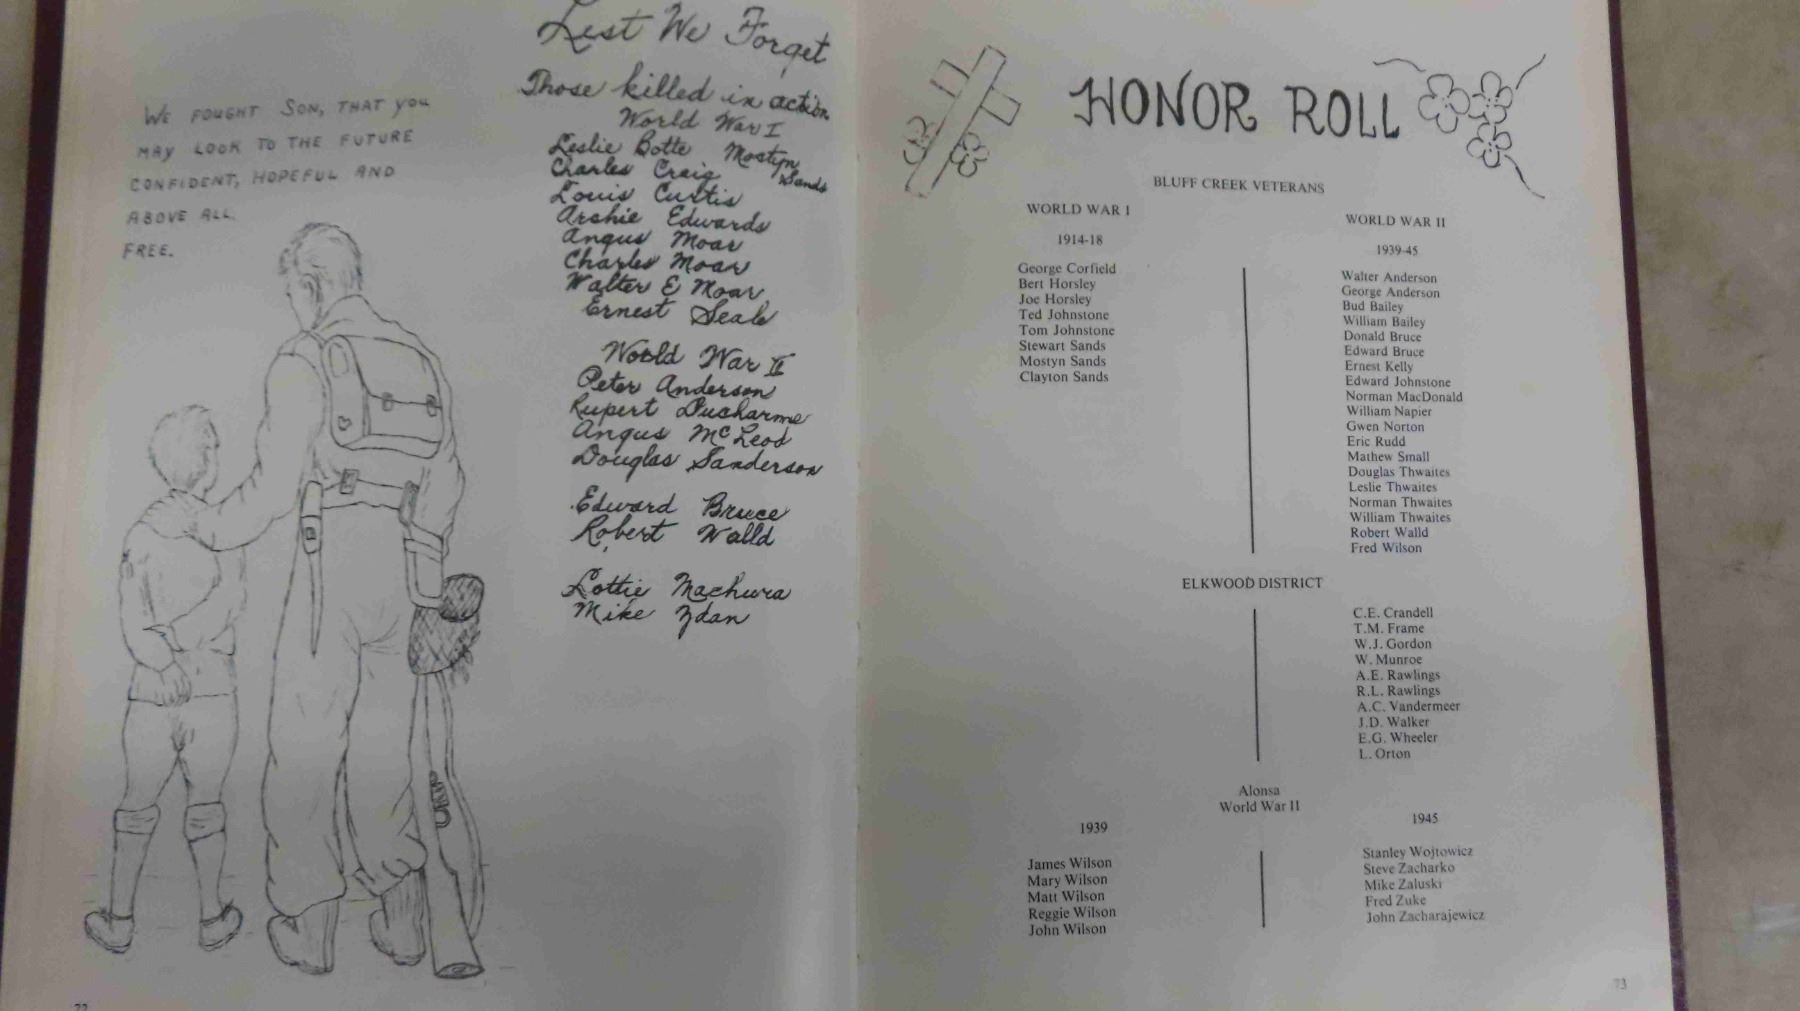 We fought Son, that you
may look to the future
confident, hopeful and
above all.
free.
Lest We Forget
Those killed in action
World War I
Leslie Botte Mostyn Sands
Charles Craig
Louis Curtis
Archie Edwards
Angus Moar
Charles Moar
Walter E Moar
Ernest Seale
World War II
Peter Anderson
Rupert Ducharme
Angus McLeod
Douglas Sanderson
Edward Bruce
Robert Walld
Lottie Machura
Mike Zdan
72
HONOR ROLL
BLUFF CREEK VETERANS
WORLD WAR I
1914-18
George Corfield
Bert Horsley
Joe Horsley
Ted Johnstone
Tom Johnstone
Stewart Sands
Mostyn Sands
Clayton Sands
WORLD WAR II
1939-45
Walter Anderson
George Anderson
Bud Bailey
William Bailey
Donald Bruce
Edward Bruce
Ernest Kelly
Edward Johnstone
Norman MacDonald
William Napier
Gwen Norton
Eric Rudd
Mathew Small
Douglas Thwaites
Leslie Thwaites
Norman Thwaites
William Thwaites
Robert Walld
Fred Wilson
ELKWOOD DISTRICT
C.E. Crandell
T.M. Frame
W.J. Gordon
W. Munroe
A.E. Rawlings
R.L. Rawlings
A.C. Vandermeer
J.D. Walker
E.G. Wheeler
L. Orton
Alonsa
World War II
1939
James Wilson
Mary Wilson
Matt Wilson
Reggie Wilson
John Wilson
1945
Stanley Wojtowicz
Steve Zacharko
Mike Zaluski
Fred Zuke
John Zacharajewicz
73